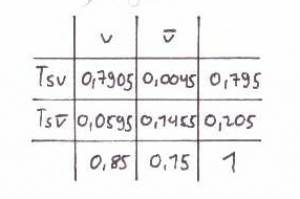 v v̄
Tsv 0,7905 0,0045 0,795
Tsv̄ 0,0595 0,1455 0,205
0,85 0,15 1